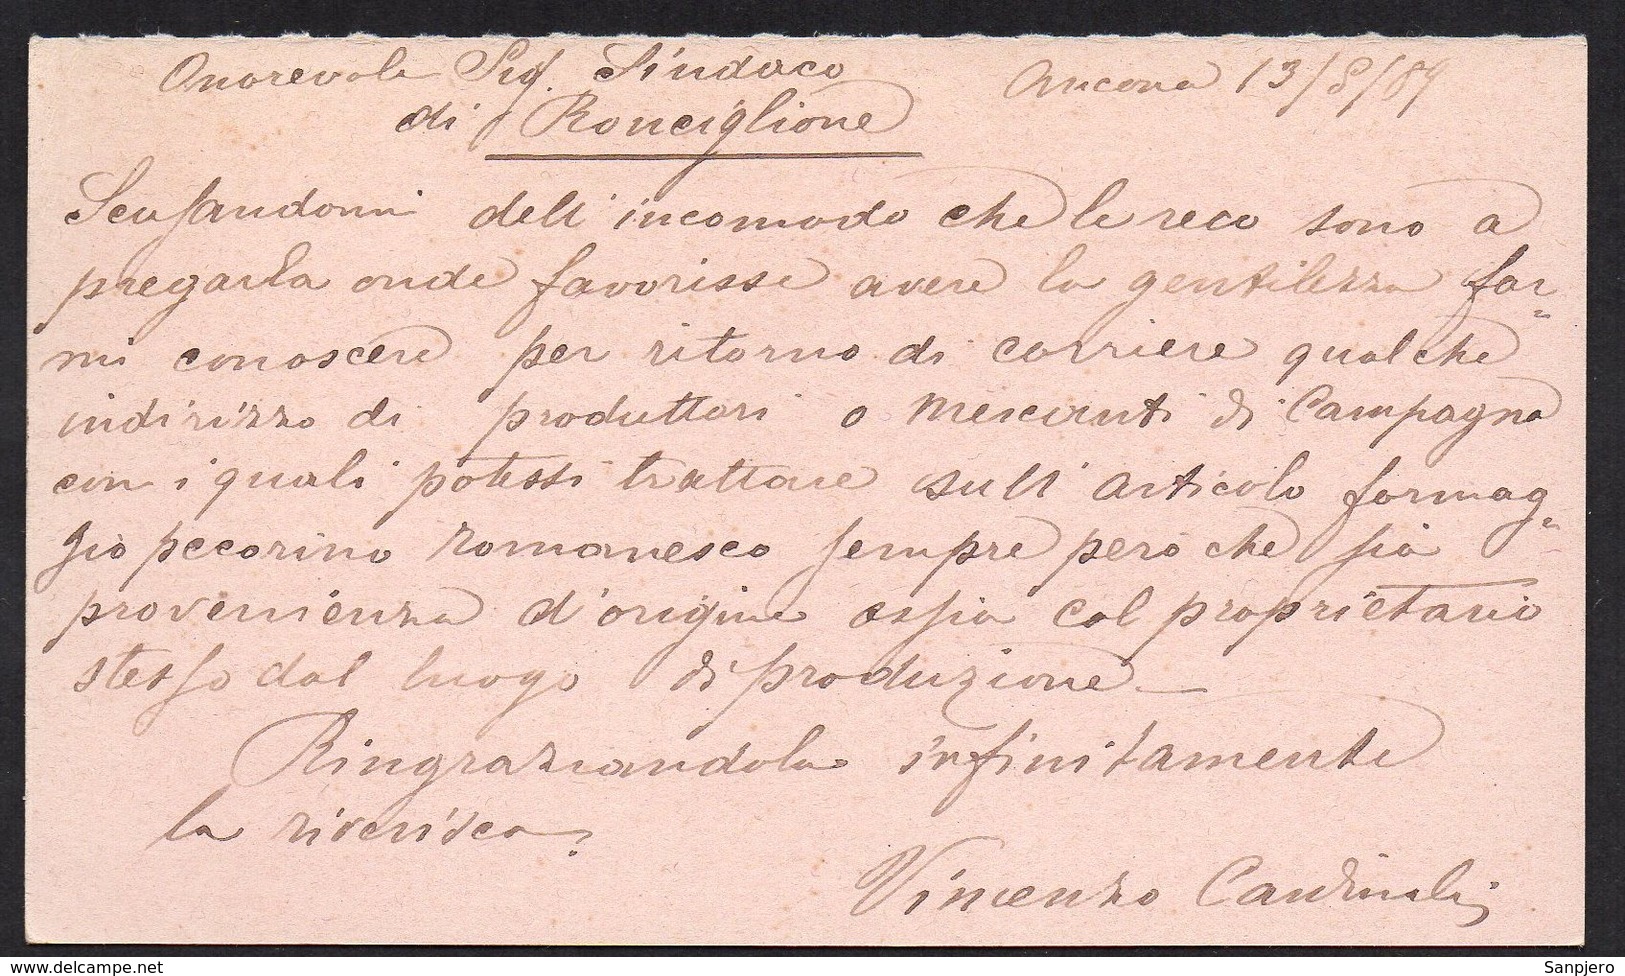 Onorevole Sig. Sindaco
Ancona 13/8/89
di Ronciglione
Scusandomi dell'incomodo che le reco sono a
pregarla onde favorisse avere la gentilezza far=
mi conoscere per ritorno di corriere qualche
indirizzo di produttori o mercanti di Campagna
con i quali potessi trattare sull'articolo formag=
gio pecorino romanesco sempre però che sia
provenienza d'origine ossia col proprietario
stesso dal luogo di produzione
Ringraziandola infinitamente
la riverisco
Vincenzo Cardinali
delcampe.net
Sanpjero